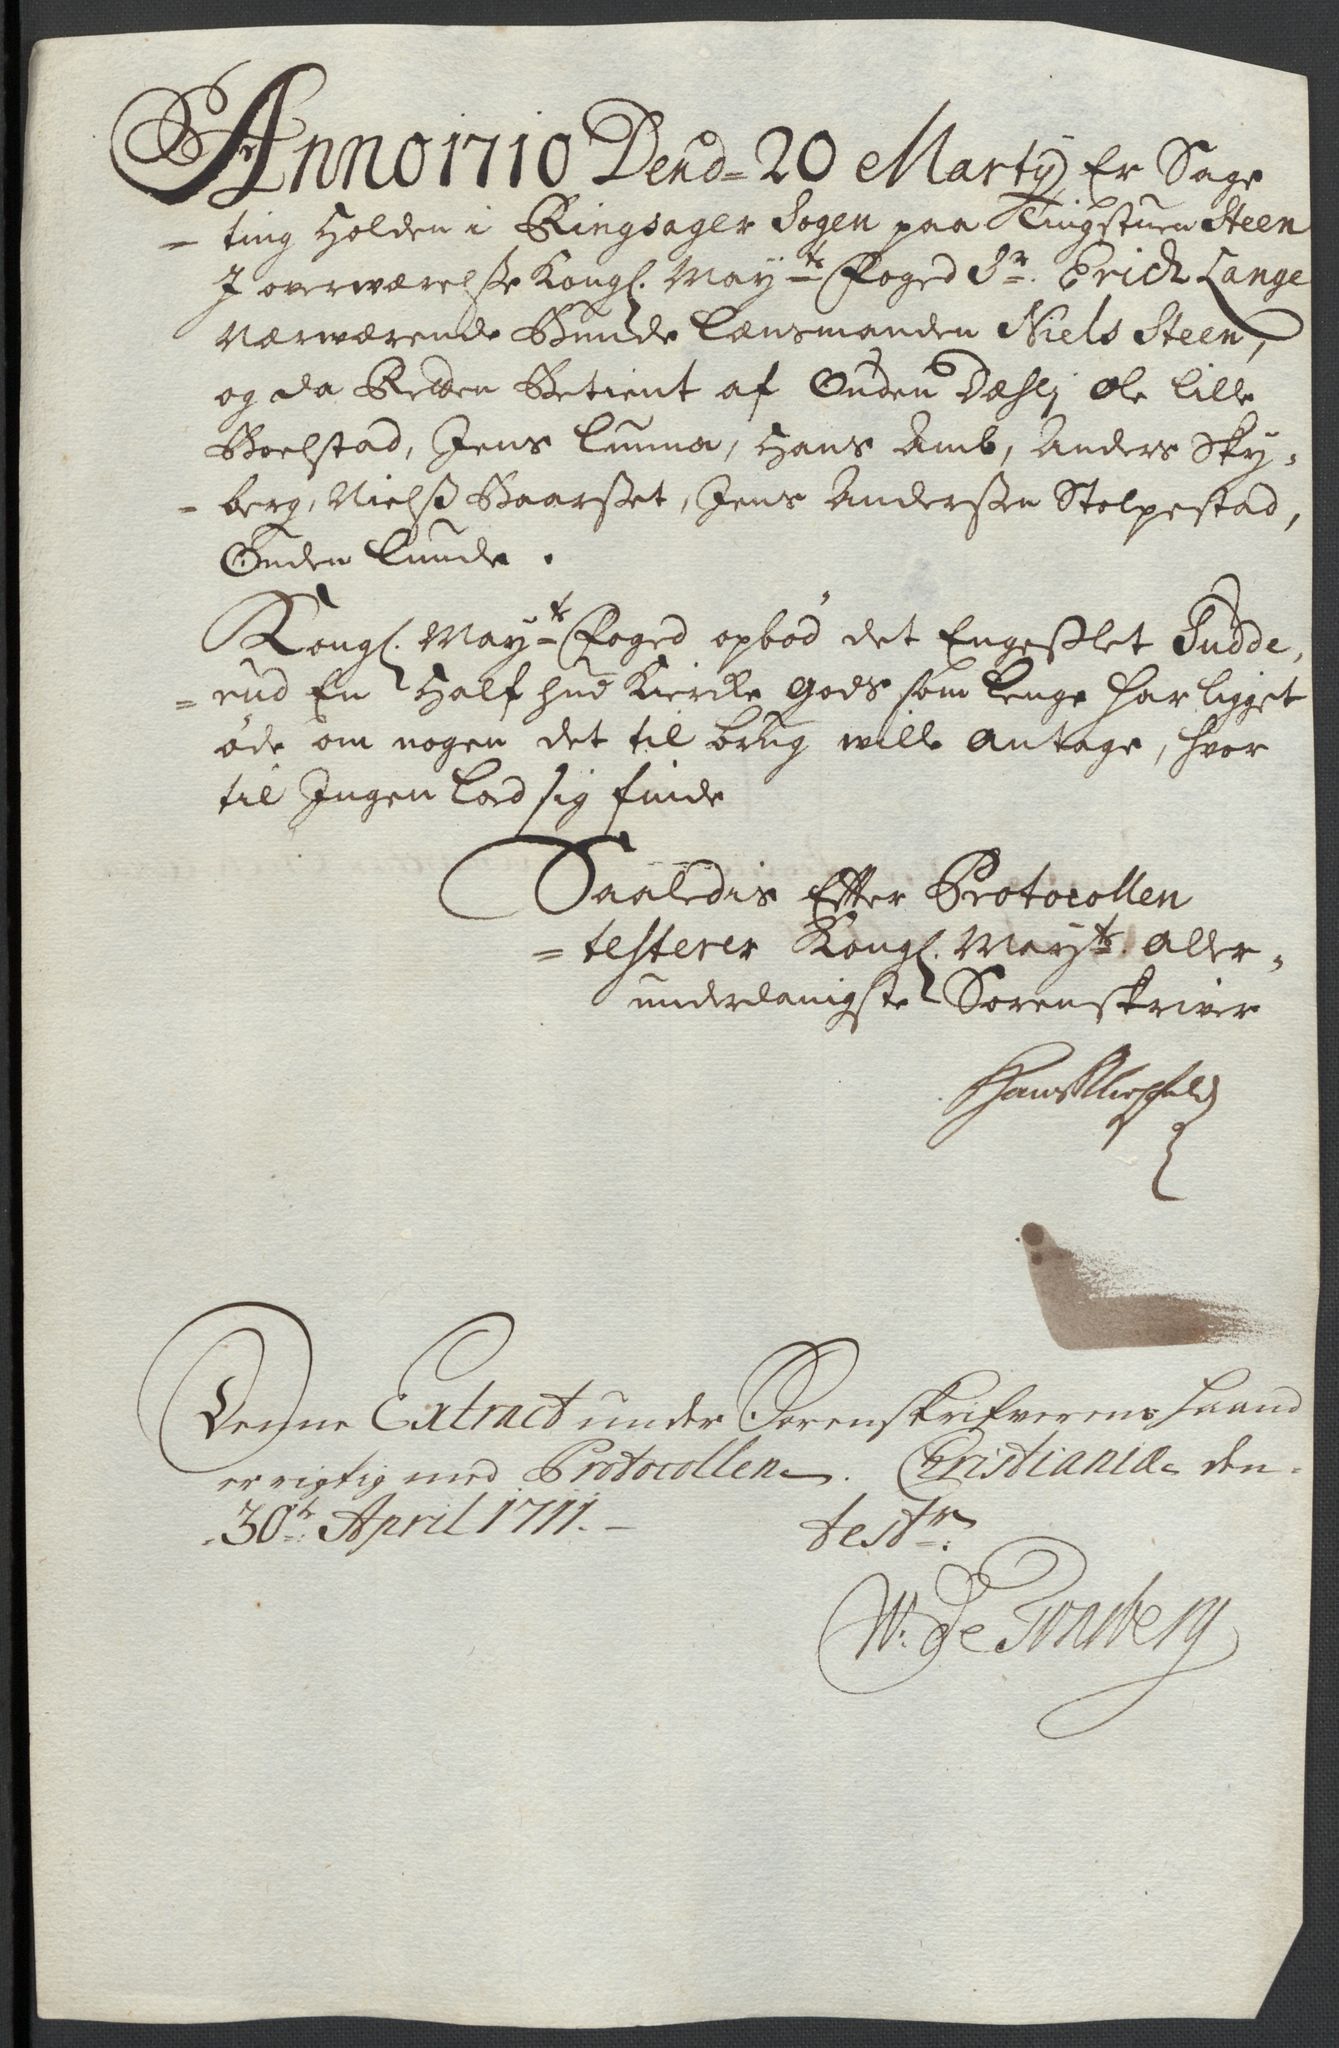 Anno 1710 Dend= 20 Marty Er Sage
= ting Holden i Ringsager Sogen paa Tingstuen Steen
J overwærelsse Kongl. Mayts Foged Sr. Erich Lange
Nærwærende Bunde Lænsmanden Niels Steen,
og da Retten Betient af Guden Dæhlj Ole Lille
Boelstad, Jens Lunna, Hans Amb, Anders Sky,
= berg, Nielss Baarsset, Jens Anderssen Stolpestad,
Guden Lunde.
Kongl. Mayts Foged opbød det Engesslet Tudde,
= rud En Half hud Kircke Gods som lenge har ligget
öde om nogen det til brug wille Antage, hvor
til Ingen lod sig finde
Saaledis Efter Protocollen
= testerer Kongl. Mayts. Aller,
underdanigste Sorenskriver
Denne Extract under Sorenskrifverens haand
er rigtig med Protocollen. Christiania den
30te April 1711.
testr.
W. De Tonsberg